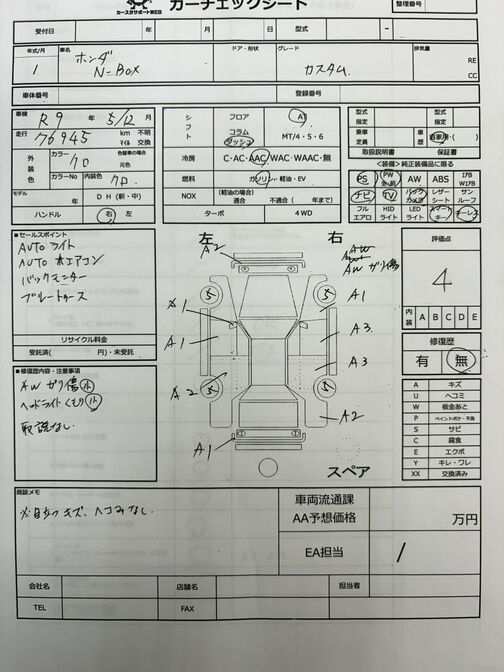 カーチェックシート
カースタサポートWEB
整理番号
受付日 年 月 日 型式 -
年式/月 車名 ドア・形状 グレード 排気量
1 ホンダ N-BOX カスタム RE CC
車体番号 登録番号
車検 R9 年 5/12 月
走行 76945 km マイル 不明 交換
外装色 カラー クロ 色替車の場合 元色
カラーNo 内装色 クロ
モデル 年 DH(新・中)
ハンドル 右 左
シフト フロア AT
コラム ダッシュ MT/4・5・6
冷房 C・AC・AAC・WAC・WAAC・無
燃料 ガソリン・軽油・EV
NOX (軽油の場合) 適合 不適合( 年まで)
ターボ 4WD
型式指定 類別
乗車定員 車歴 自家用・( )
取扱説明書 保証書
<装備>純正装備品に限る
PS PW全・前 AW ABS 17B W17B
ナビ TV バックカメラ レザーシート サンルーフ
フルエアロ HIDライト LEDライト スマートキー キーレス
■セールスポイント
AUTOライト
AUTOエアコン
バックモニター
ブルートゥース
リサイクル料金
受託済( 円)・未受託
■修復歴内容・注意事項
AWガリ傷 小
ヘッドライトくもり 小
取説なし
左 右
A2
AWガリ傷
5 5
A1 A1
A1 A3
A3
A2 5 5
A2
A1
スペア
評価点
4
内装 A B C D E
修復歴
有 無
A キズ
U ヘコミ
W 板金あと
P ペイントボケ・不良
S サビ
C 腐食
E エクボ
Y キレ・ワレ
XX 交換済み
商談メモ
※目立つキズ、ヘコみなし
車両流通課
AA予想価格 万円
EA担当 /
会社名 店舗名 担当者
TEL FAX